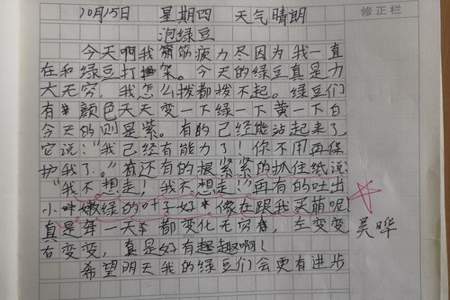 10月15日 星期四 天气晴朗
泡绿豆
今天啊我筋疲力尽因为我一直
在和绿豆打架。今天的绿豆真是力
大无穷,我怎么拨都拨不起。绿豆们
有颜色天天变一下绿一下黄一下白
今天的则是紫。有的已经能站起来了,
它说:“我已经有能力了!你不用再保
护我了。”有还有的根紧紧的抓住纸说:
“我不想走!我不想走!”再有的吐出
小嫩绿的叶子好像在跟我买萌呢!
真是每一天都变化无穷,左变变
右变变,真是好有趣趣啊!
希望明天我的绿豆们会更有进步
修正栏
吴晔